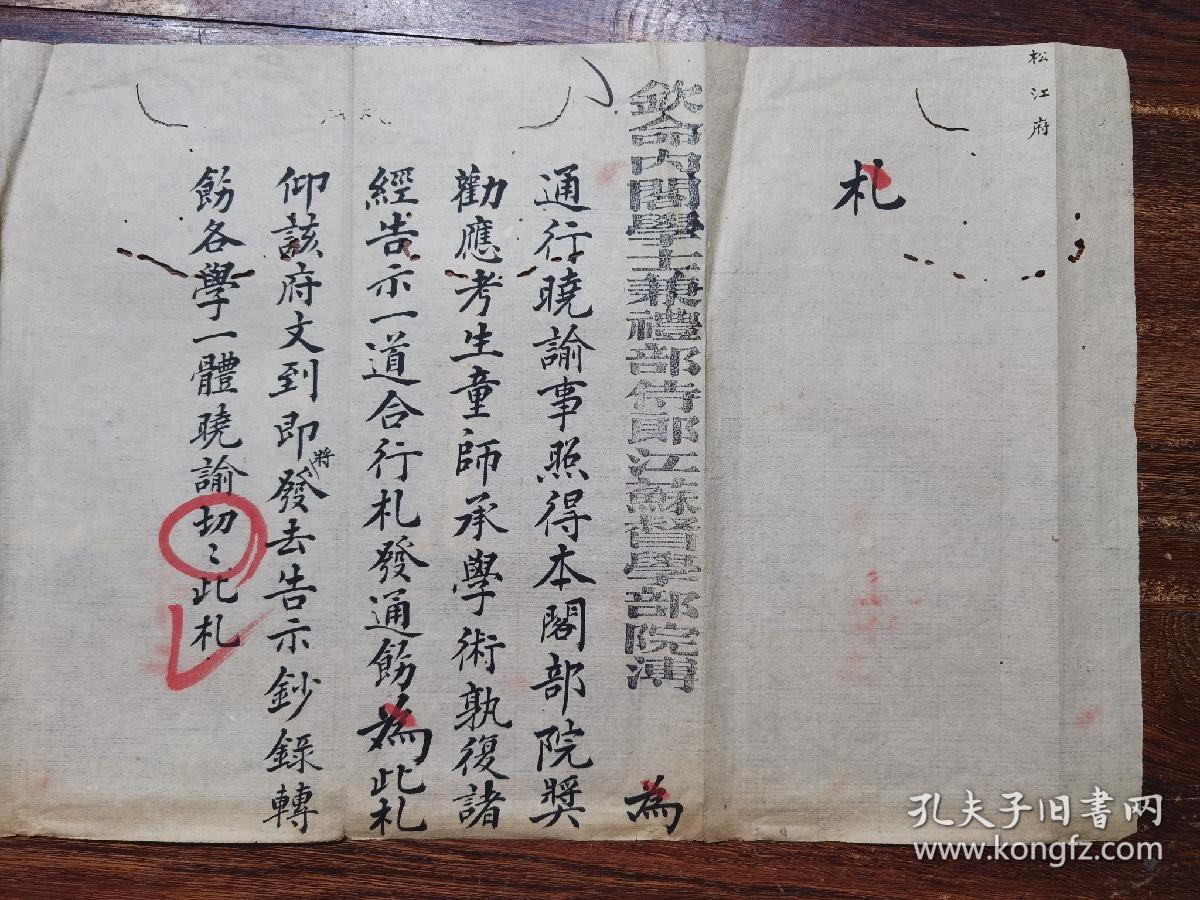 松江府
札
欽命內閣學士兼禮部侍郎江蘇督學部院溥 為
通行曉諭事照得本閣部院奬
勸應考生童師承學術孰復諸
經告示一道合行札發通飭為此札
仰該府文到即將發去告示鈔錄轉
飭各學一體曉諭切〻此札
孔夫子旧书网
www.kongfz.com